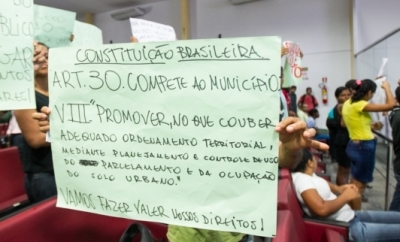 CONSTITUIÇÃO BRASILEIRA
ART. 30. COMPETE AO MUNICÍPIO
VIII "PROMOVER, NO QUE COUBER
ADEQUADO ORDENAMENTO TERRITORIAL,
MEDIANTE PLANEJAMENTO E CONTROLE DE USO
DO PARCELAMENTO E DA OCUPAÇÃO
DO SOLO URBANO."
VAMOS FAZER VALER NOSSOS DIREITOS!